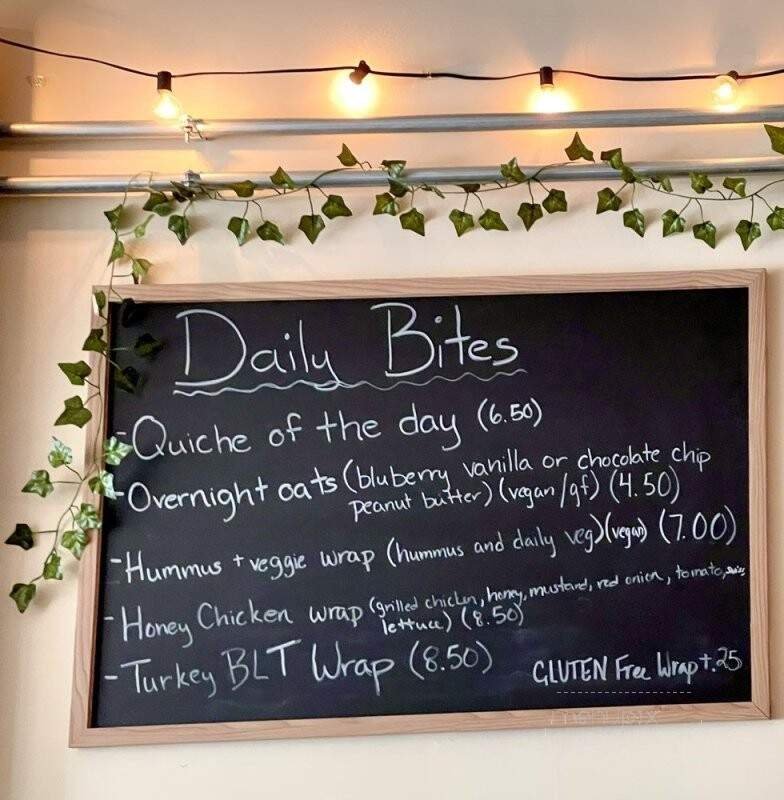 Daily Bites
-Quiche of the day (6.50)
-Overnight oats (bluberry vanilla or chocolate chip
peanut butter) (vegan/gf) (4.50)
-Hummus + veggie wrap (hummus and daily veg)(vegan) (7.00)
-Honey Chicken wrap (grilled chicken, honey, mustard, red onion, tomato, swiss
lettuce) (8.50)
-Turkey BLT Wrap (8.50)
GLUTEN Free Wrap +.25